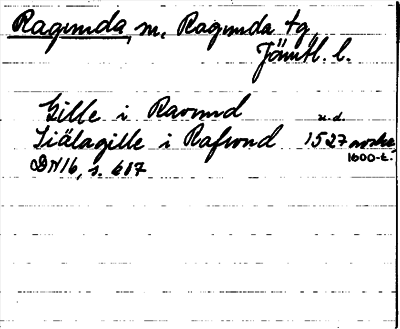 Ragunda, sn, Ragunda tg
Jämtl. l.
Gille i Ravund
u.d.
Siälagille i Rafwond 1527 avskr.
1600-t.
DN16, s. 617